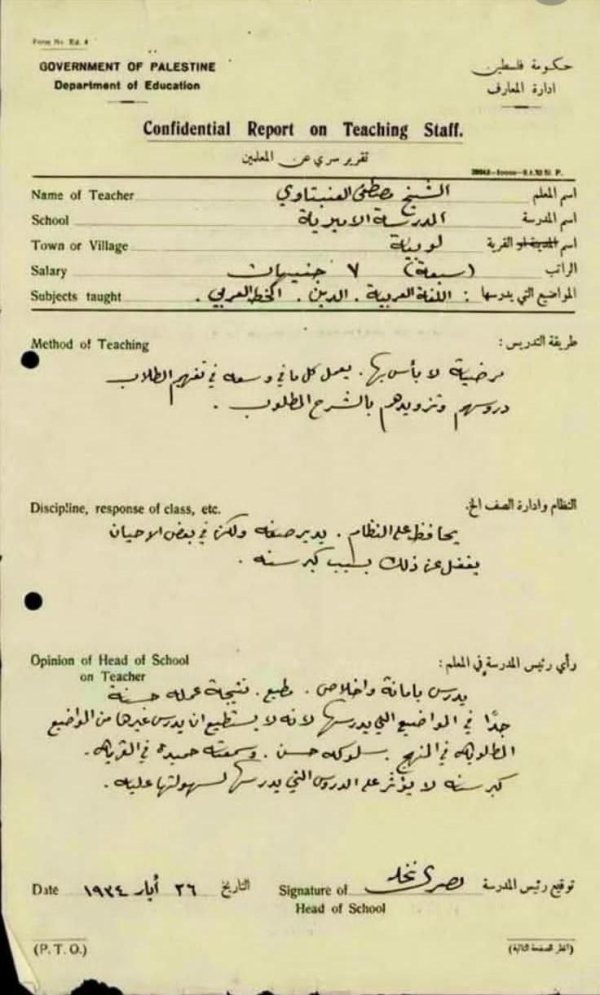 Form No. Ed. 4
GOVERNMENT OF PALESTINE حكومة فلسطين
Department of Education ادارة المعارف
Confidential Report on Teaching Staff.
تقرير سري عن المعلمين
Name of Teacher الشيخ مصطفى العنبتاوي اسم المعلم
School المدرسة الاميرية اسم المدرسة
Town or Village لوبية اسم المدينة او القرية
Salary (سبعة) ٧ جنيهات الراتب
Subjects taught اللغة العربية . الدين . الخط العربي . المواضيع التي يدرسها :
Method of Teaching طريقة التدريس :
مرضية لا بأس بها . يعمل كل ما في وسعه في تفهيم الطلاب
دروسهم وتزويدهم بالشرح المطلوب .
Discipline, response of class, etc. النظام وادارة الصف الخ.
يحافظ على النظام . يدير صفه ولكن في بعض الاحيان
يغفل عن ذلك بسبب كبر سنه .
Opinion of Head of School رأي رئيس المدرسة في المعلم :
on Teacher
يدرس بامانة واخلاص . مطيع . نتيجة عمله حسنة
جدًا في المواضيع التي يدرسها لانه لا يستطيع ان يدرس غيرها من المواضيع
المطلوبة في المنهج . سلوكه حسن . وسمعته حميدة في القرية .
كبر سنه لا يؤثر على الدروس التي يدرسها لسهولتها عليه .
Date ٢٦ أيار ١٩٣٤ التاريخ Signature of نصري توقيع رئيس المدرسة
Head of School
(P. T. O.) (انظر الصفحة التالية)